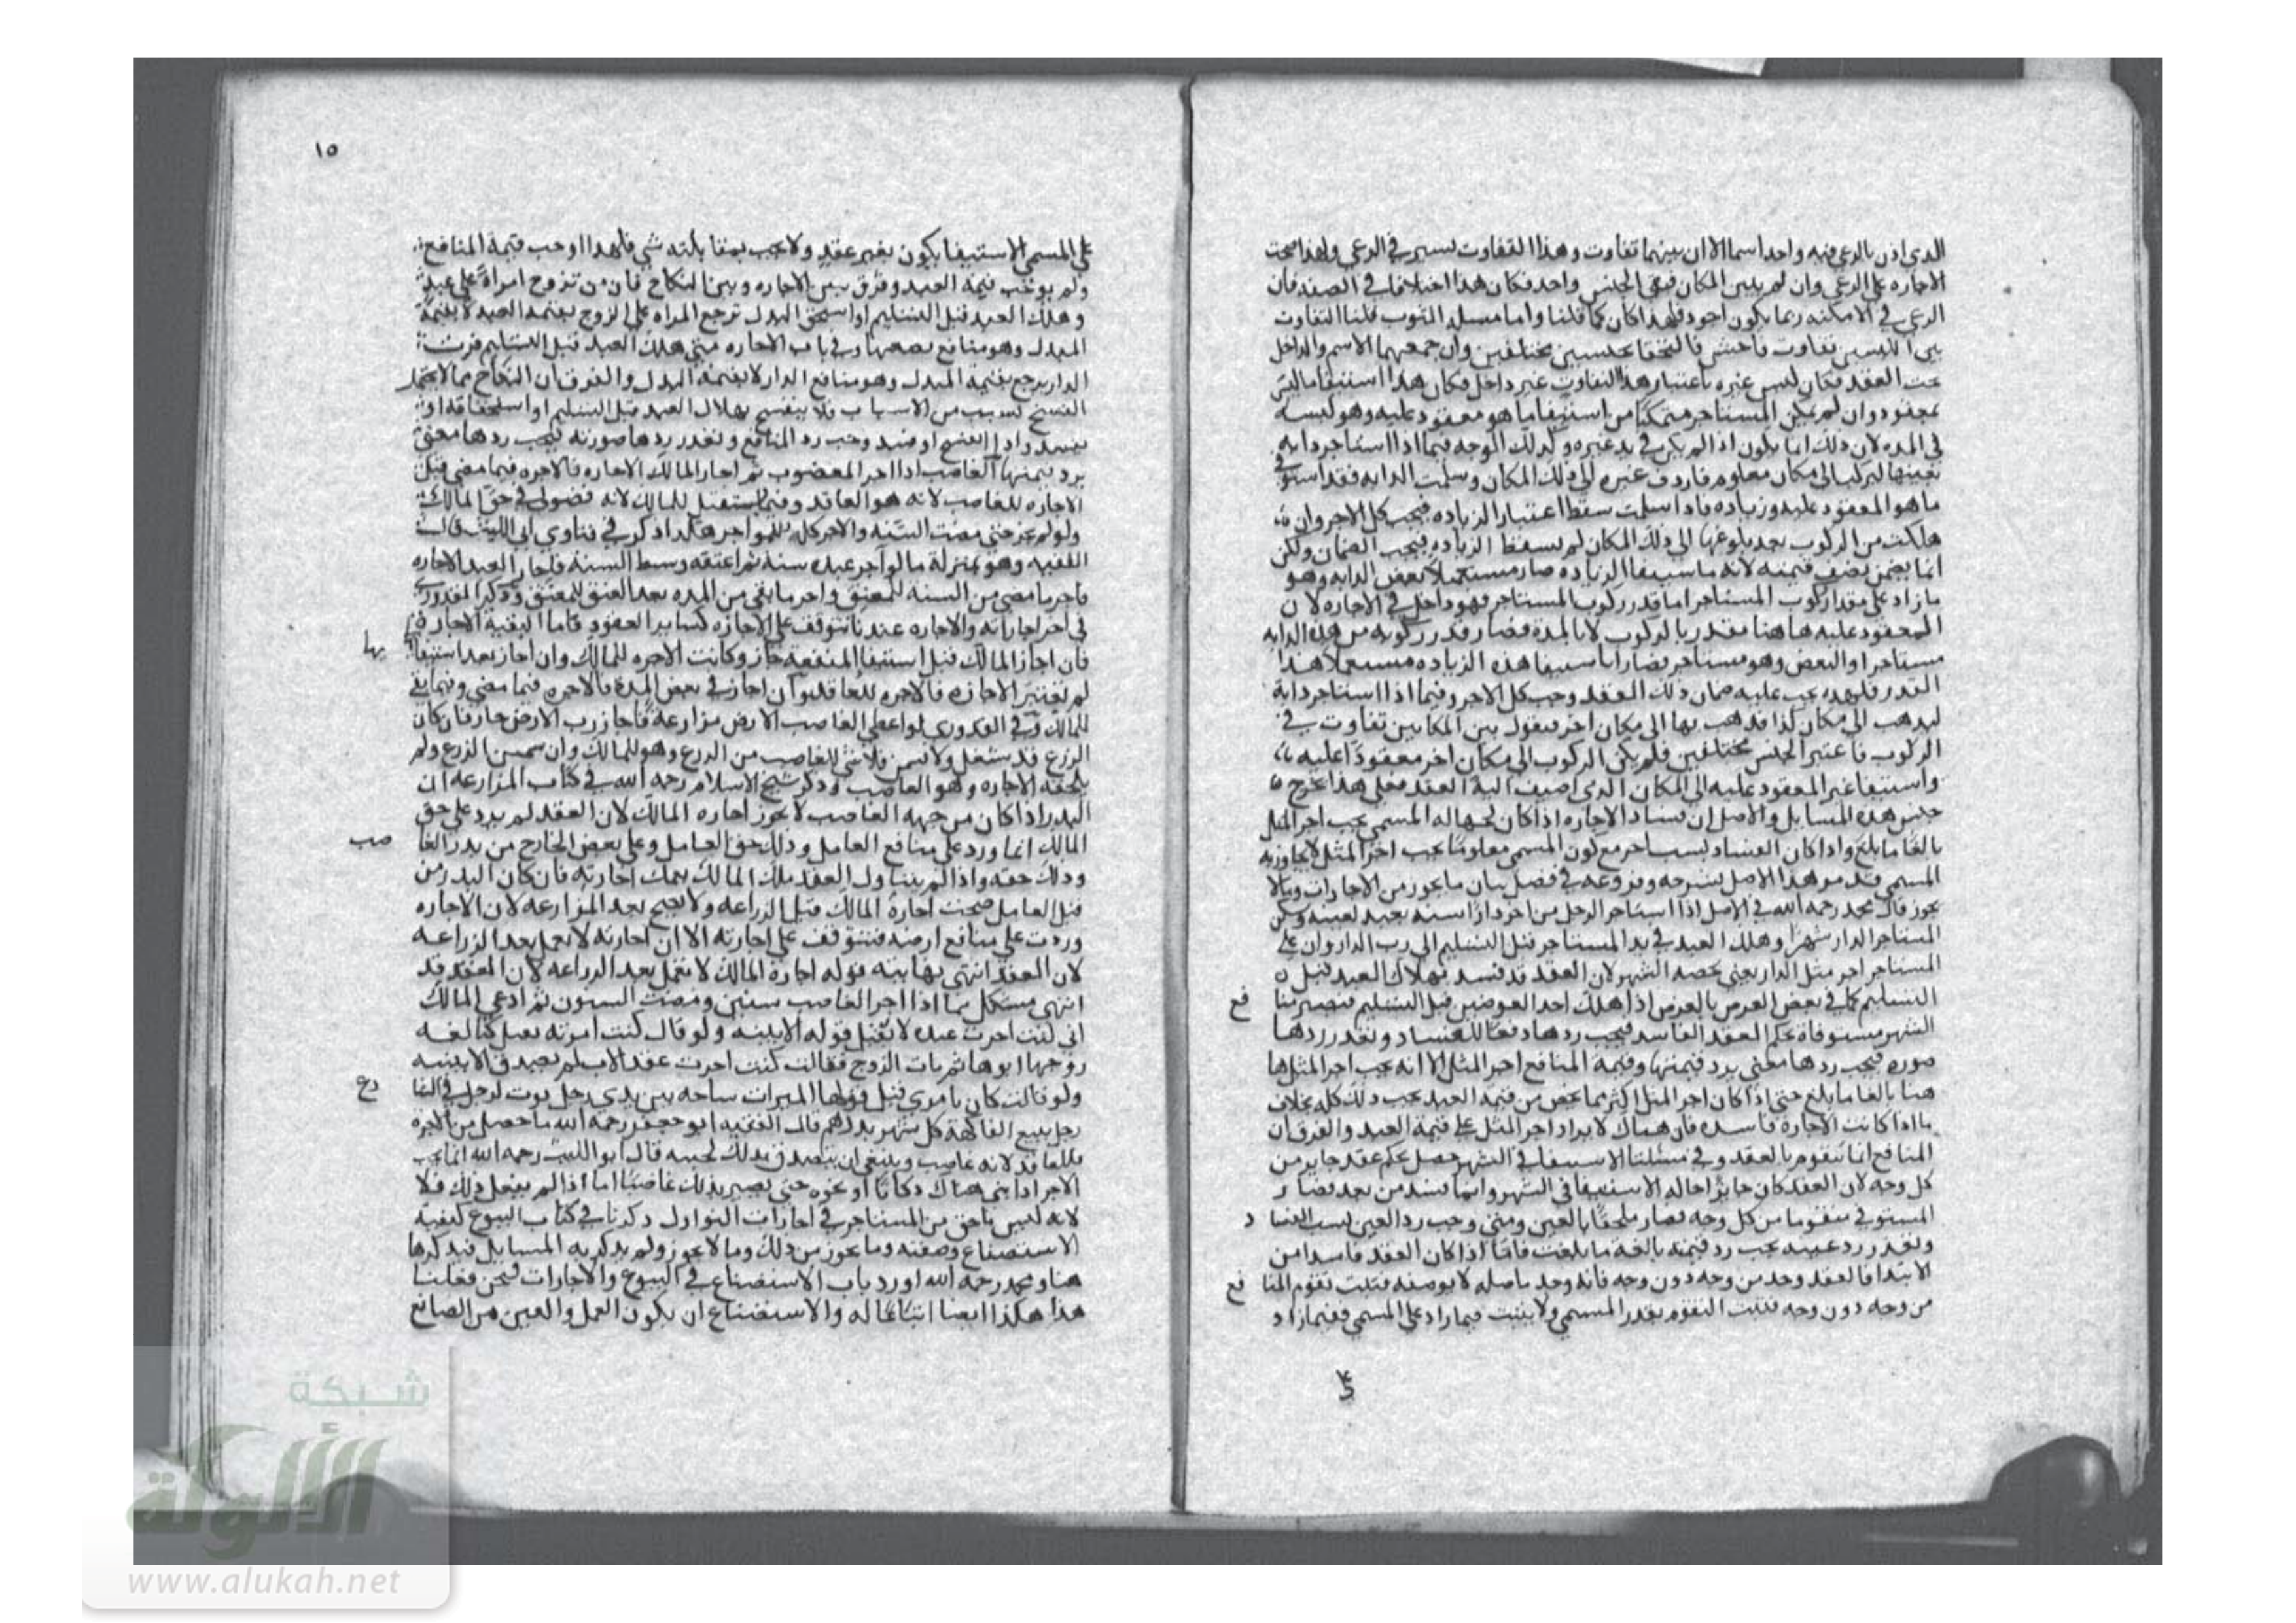 الذي اذن بالرعي فيه واحد اسما الا ان بينهما تفاوت وهذا التفاوت يسير في الرعي ولهذا صحت
الاجاره على الرعي وان لم يبين المكان فبقي الجنس واحد فكان هذا اختلافا في الصفه فان
الرعي في الامكنه ربما يكون اجود فلهذا كان كما قلنا واما مسله الثوب قلنا التفاوت
بين اللبسين تفاوت فاحش فالتحقا بجنسين مختلفين وان جمعهما الاسم والداخل
تحت العقد فكان لبس غيره باعتبار هذا التفاوت غير داخل فكان هذا استيفا ما ليس
بمعقود وان لم يكن المستاجر متمكنا من استيفا ما هو معقود عليه وهو لبسه
في المده لان ذلك انما يكون اذا لم يكن في يد غيره وكذلك الوجه فيما اذا استاجر دابه
بعينها ليركب الى مكان معلوم فاردف غيره الى ذلك المكان وسلمت الدابه فقد استوفى
ما هو المعقود عليه وزياده فاذا سلمت سقط اعتبار الزياده فيجب كل الاجر وان
هلكت من الركوب بعد بلوغها الى ذلك المكان لم يسقط الزياده فيجب الضمان ولكن
انما يضمن نصف قيمته لانه باستيفا الزياده صار مستعملا بعض الدابه وهو
ما زاد على مقدار ركوب المستاجر اما قدر ركوب المستاجر فهو داخل في الاجاره لان
المعقود عليه هاهنا مقدر بالركوب لا بالمدة فصار قدر ركوبه من هذه الدابه
مستاجرا والبعض وهو مستاجر فصار باستيفا هذه الزياده مستعملا هذا
القدر فلهذا يجب عليه ضمان ذلك العقد وجب كل الاجر وفيما اذا استاجر دابة
ليذهب الى مكان كذا فذهب بها الى مكان اخر فنقول بين المكانين تفاوت في
الركوب فاعتبر الجنس مختلفين فلم يكن الركوب الى مكان اخر معقودا عليه
واستيفا غير المعقود عليه الى المكان الذي اضيف اليه العقد فعلى هذا يخرج
جنس هذه المسايل والاصل ان فساد الاجاره اذا كان لجهاله المسمى يجب اجر المثل
بالغا ما بلغ واذا كان الفساد لسبب اخر مع كون المسمى معلوما يجب اجر المثل لا يجاوز به
المسمى قد مر هذا الاصل بشرحه وفروعه في فصل بيان ما يجوز من الاجارات وما لا
يجوز قال محمد رحمه الله في الاصل اذا استاجر الرجل من اخر دارا سنه بعبد بعينه وسكن
المستاجر الدار شهرا وهلك العبد في يد المستاجر قبل التسليم الى رب الدار وان على
المستاجر اجر مثل الدار يعني بحصه الشهر لان العقد قد فسد بهلاك العبد قبل
التسليم كما في بعض العرض بالعرض اذا هلك احد العوضين قبل التسليم فتصير منا
فع
الشهر مستوفاة بحكم العقد الفاسد فيجب ردها دفعا للفساد وتعذر ردها
صوره فيجب ردها معنى برد قيمتها وقيمة المنافع اجر المثل الا انه يجب اجر المثل ها
هنا بالغا ما بلغ حتى اذا كان اجر المثل اكثر مما يخص من قيمه العبد يجب ذلك كله بخلاف
ما اذا كانت الاجارة فاسده فان هناك لا يزاد اجر المثل على قيمة العبد والفرق ان
المنافع انما تتقوم بالعقد وفي مسئلتنا الاستيفا في الشهر حصل بحكم عقد جايز من
كل وجه لان العقد كان جايزا حاله الاستيفا في الشهر وانما فسد من بعد فصار
المستوفى متقوما من كل وجه فصار ملحقا بالعين ومتى وجب رد العين لسبب الفسا
د
وتعذر رد عينه يجب رد قيمته بالغة ما بلغت فاما اذا كان العقد فاسدا من
الابتدا فالعقد وجد من وجه دون وجه فانه وجد باصله لا بوصفه فثبت تقوم المنا
فع
من وجه دون وجه فثبت التقوم بقدر المسمى ولا يثبت فيما زاد على المسمى ففيما زاد
١٥
على المسمى الاستيفا يكون بغير عقد ولا يجب بمقابلته شي فلهذا اوجب قيمة المنافع
ولم يوجب قيمة العبد وفرق بين الاجاره وبين النكاح فان من تزوج امراة على عبد
وهلك العبد قبل التسليم او استحق البدل ترجع المراه على الزوج بقيمه العبد لا بقيمة
المبدل وهو منافع بضعها وفي باب الاجاره متى هلك العبد قبل التسليم فرب
الدار يرجع بقيمة المبدل وهو منافع الدار لا بقيمة البدل والفرق ان النكاح مما لا يحتمل
الفسخ لسبب من الاسباب فلا ينفسخ بهلاك العبد قبل التسليم او استحقاقه
يفسد واذا انفسخ او فسد وجب رد المنافع وتعذر ردها صورته فيجب ردها معنى
برد قيمتها الغاصب اذا اجر المغصوب ثم اجاز المالك الاجاره فالاجره فيما مضى قبل
الاجازه للغاصب لانه هو العاقد وفيما يستقبل للمالك لانه فضولي في حق المالك
ولو لم يجز حتى مضت السنه والاجر كله للمواجر هكذا ذكر في فتاوي ابي الليث قال
الفقيه وهو بمنزلة ما لو آجر عبده سنة ثم اعتقه وسط السنة فاجاز العبد الاجاره
فاجر ما مضى من السنه للمعتق واجر ما بقي من المده بعد العتق للمعتق وذكر القدوري
في اخر اجاراته والاجاره عندنا تتوقف على الاجازه كساير العقود فاما البقية الاجارة
فان اجاز المالك قبل استيفا المنفعه جاز وكانت الاجره للمالك وان اجاز بعد استيفا
يها
لم تعتبر الاجازه فالاجره للعاقد وان اجاز في بعض المدة فالاجره فيما مضى وفيما بقي
للمالك وفي القدوري لو اعطى الغاصب الارض مزارعة فاجاز رب الارض جاز فان كان
الزرع قد سنبل ولا شي للغاصب من الزرع وهو للمالك وان سمسن الزرع ولم
يلحقه الاجاره وهو الغاصب وذكر شيخ الاسلام رحمه الله في كتاب المزارعه ان
البدر اذا كان من جهه الغاصب لا يجوز اجازه المالك لان العقد لم يرد على حق
المالك انما ورد على منافع العامل وذلك حق العامل وعلى بعض الخارج من بدر الغا
صب
وذلك حقه واذا لم يتناول العقد ملك المالك اجازته فان كان البدر من
قبل العامل صحت اجازة المالك قبل الزراعه ولا يصح بعد المزارعه لان الاجاره
وردت على منافع ارضه فتتوقف على اجازته الا ان اجازته لا تعمل بعد الزراعه
لان العقد انتهى نهايته قوله اجازة المالك لا تعمل بعد الزراعه لان العقد قد
انتهى مشكل بما اذا اجر الغاصب سنين ومضت السنون ثم ادعى المالك
اني كنت اجرت عبده لا تقبل قوله الا ببينه ولو قال كنت امرته
زوجها ابوها ثم مات الزوج فقالت كنت اجزت عقد الاب لم تصدق الا ببينه
ولو قالت كان بامري قبل قولها الميراث ساحه بين يدي رجل
رجل يبيع الفاكهة كل شهر بدرهم قال الفقيه ابو جعفر رحمه الله ما حصل من الاجره
فللعاقد لانه غاصب وينبغي ان يتصدق بذلك قال ابو الليث رحمه الله انما يجب
الاجر اذا بنى هناك دكانا او نحوه حتى يصير بذلك غاصبا اما اذا لم يفعل ذلك فلا
لانه ليس باحق من المستاجر في اجارات النوازل ذكرنا في كتاب البيوع كيفية
الاستصناع وصفته وما يجوز من ذلك وما لا يجوز ولم يذكر به المسايل فنذكرها
هنا ومحمد رحمه الله اورد باب الاستصناع في البيوع والاجارات فنحن فعلنا
هذا هكذا ايضا اتباعا له والاستصناع ان يكون العمل والعين من الصانع
شبكة
الألوكة
www.alukah.net